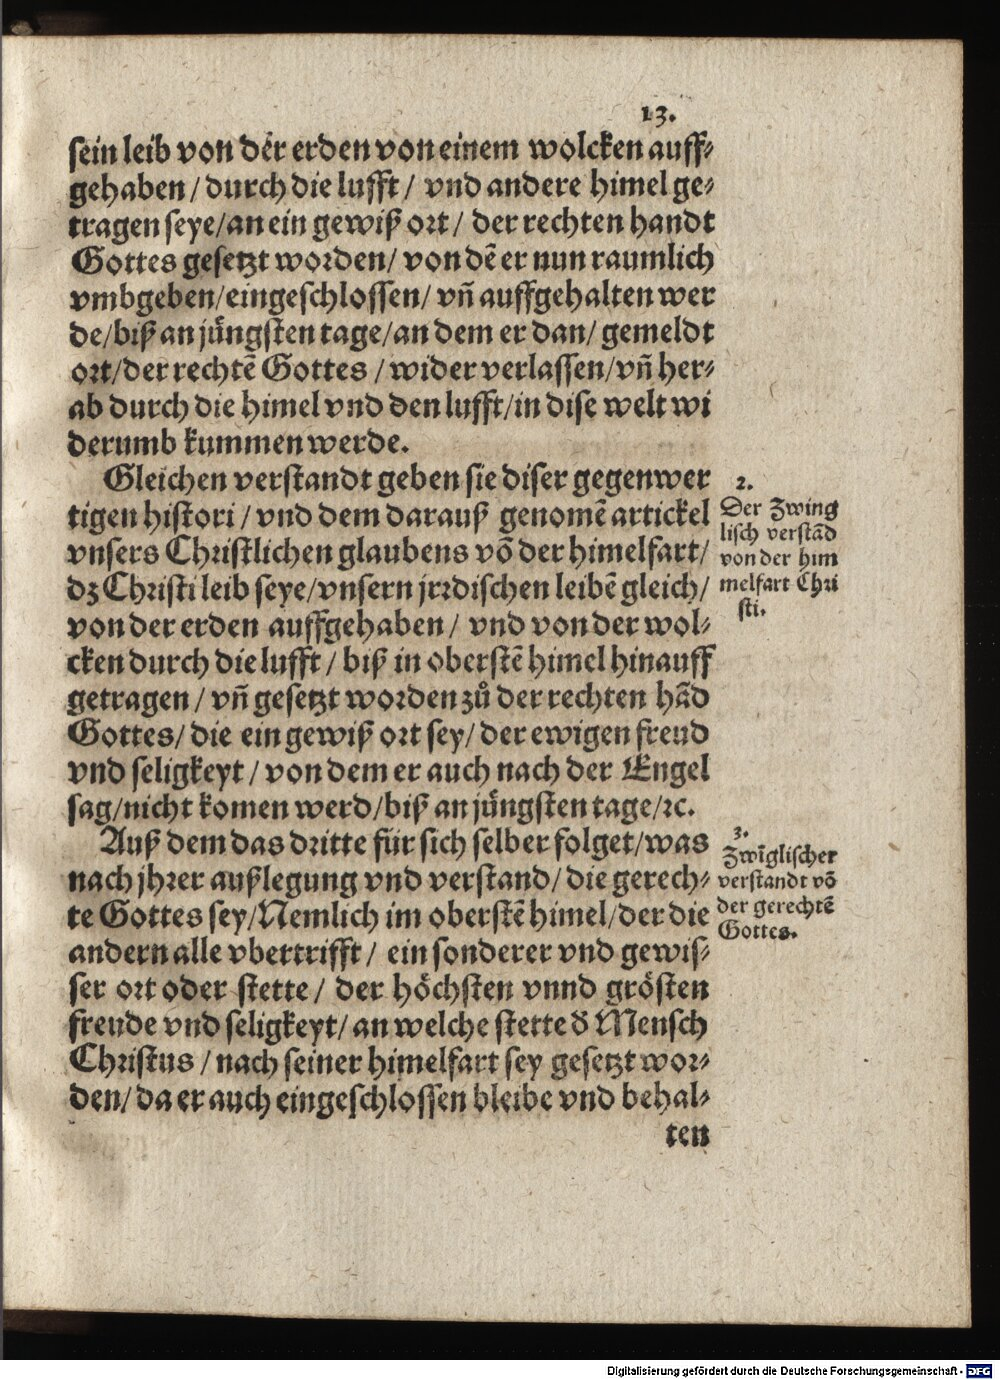 13.
sein leib von der erden von einem wolcken auff⸗
gehaben / durch die lufft / vnd andere himel ge⸗
tragen seye/an ein gewiß ort / der rechten handt
Gottes gesetzt worden/ von dẽ er nun raumlich
vmbgeben/eingeschlossen/ vñ auffgehalten wer
de/biß an jüngsten tage/an dem er dan/ gemeldt
ort/der rechtẽ Gottes / wider verlassen/vñ her⸗
ab durch die himel vnd den lufft/in dise welt wi
derumb kummen werde.
Gleichen verstandt geben sie diser gegenwer
tigen histori / vnd dem darauß genomẽ artickel
vnsers Christlichen glaubens võ der himelfart/
dz Christi leib seye/vnsern jrrdischen leibẽ gleich/
von der erden auffgehaben / vnd von der wol⸗
cken durch die lufft / biß in oberstẽ himel hinauff
getragen / vñ gesetzt worden zů der rechten hãd
Gottes/ die ein gewiß ort sey/ der ewigen freud
vnd seligkeyt / von dem er auch nach der Engel
sag/nicht komen werd/biß an jüngsten tage/ꝛc.
Auß dem das dritte für sich selber folget/was
nach jhrer außlegung vnd verstand/ die gerech⸗
te Gottes sey/Nemlich im oberstẽ himel/der die
andern alle vbertrifft / ein sonderer vnd gewis⸗
ser ort oder stette / der höchsten vnnd grösten
freude vnd seligkeyt/ an welche stette d̕ Mensch
Christus / nach seiner himelfart sey gesetzt wor⸗
den/ da er auch eingeschlossen bleibe vnd behal⸗
ten
2.
Der Zwing
lisch verstãd
von der him
melfart Chri
sti.
3.
Zwĩglischer
verstandt võ
der gerechtẽ
Gottes.
Digitalisierung gefördert durch die Deutsche Forschungsgemeinschaft - DFG